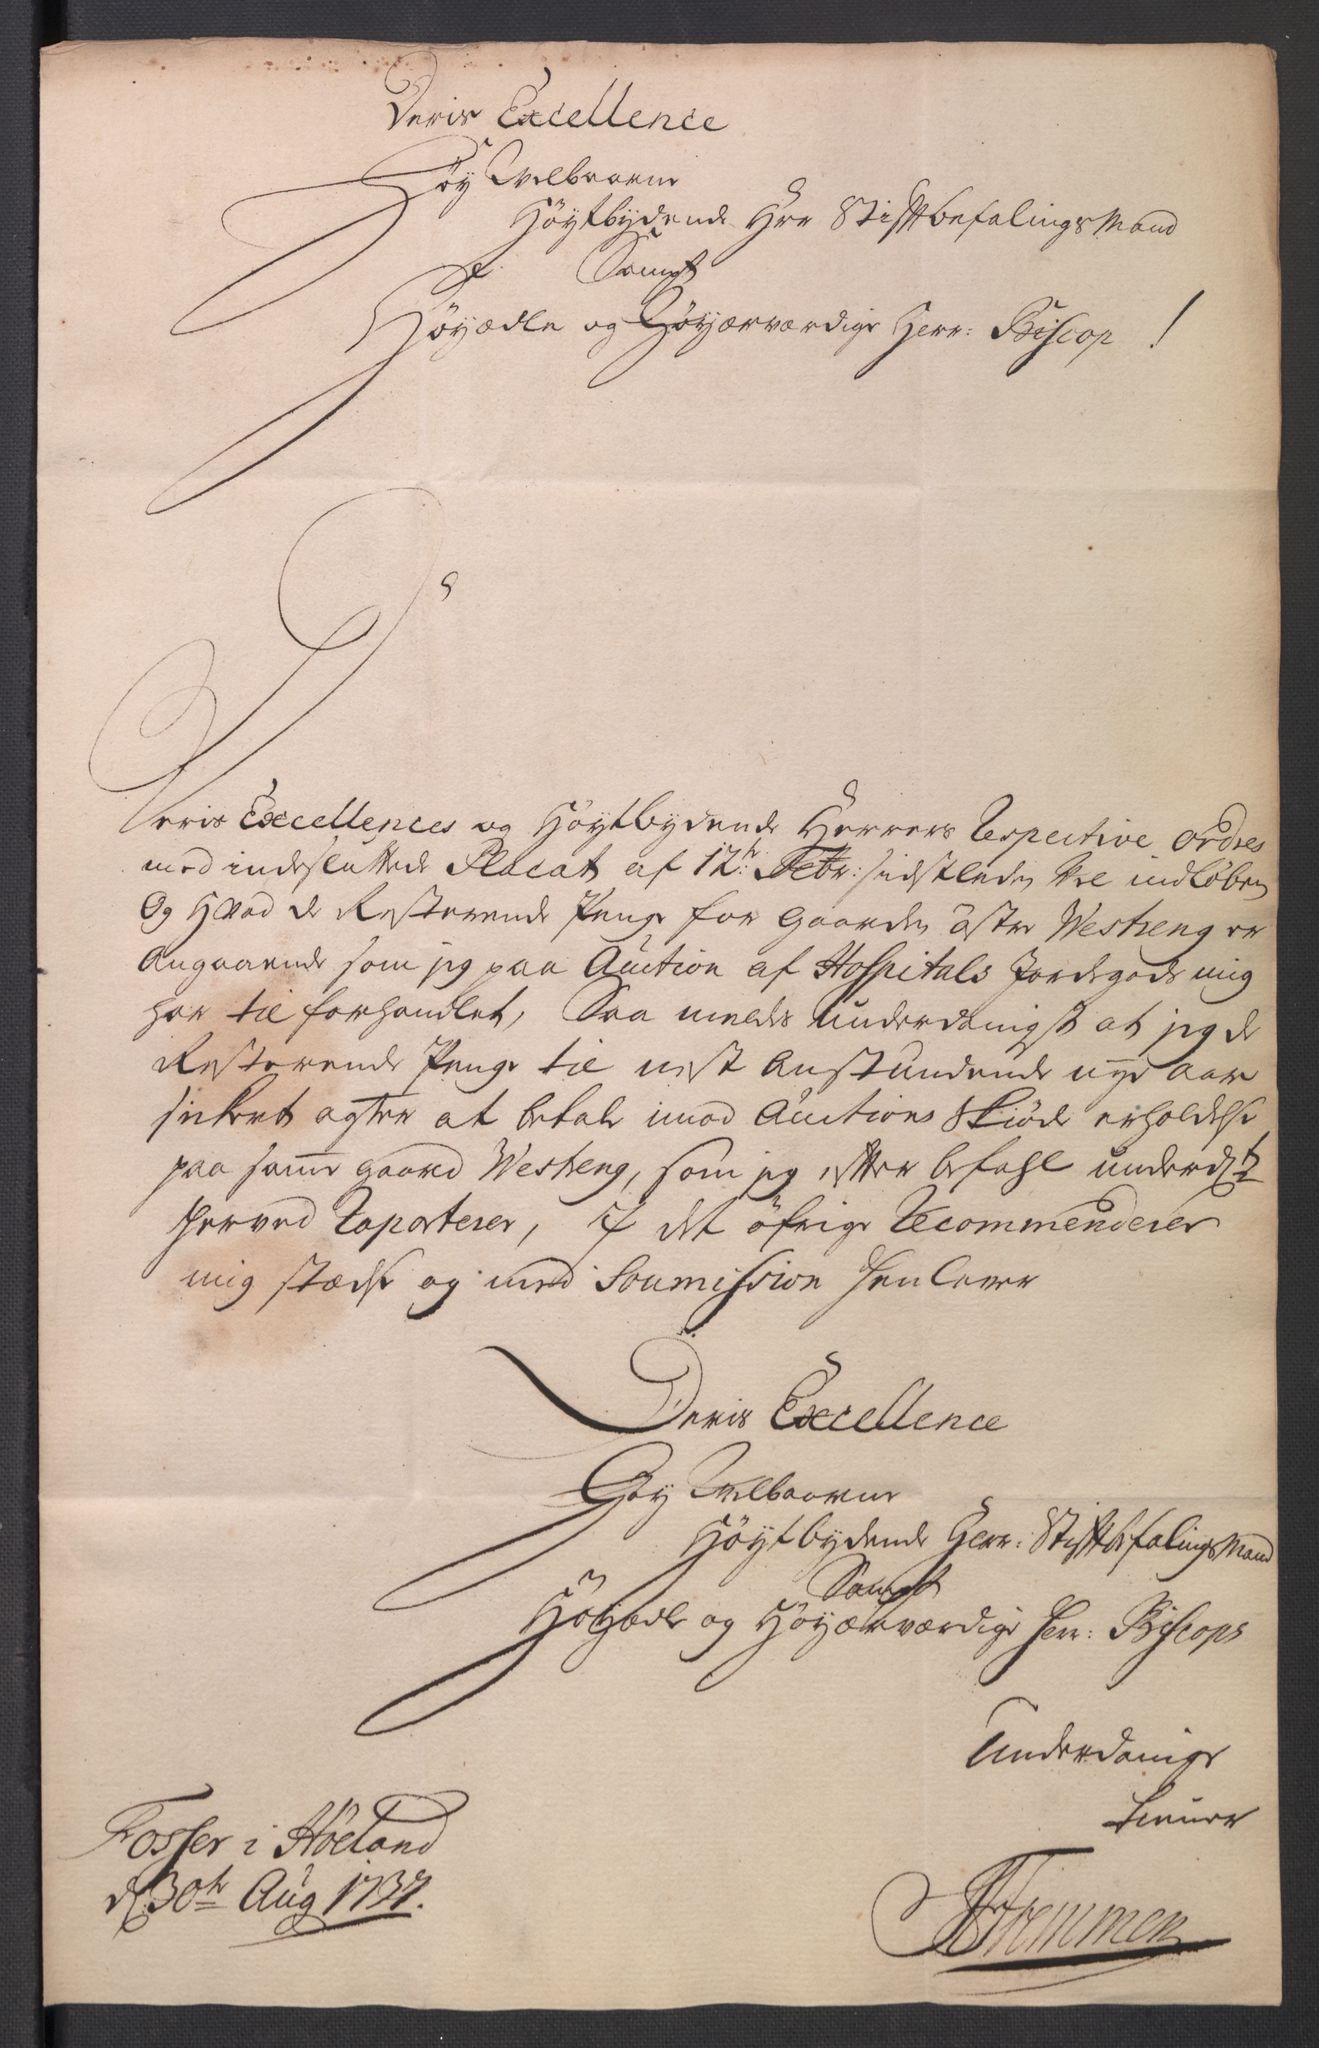 Deris Excellence
Høy Welbaarne
Høytbydende Hrr Stiftbefalings Mand
Sampt
Høyædle og Høyærværdige Herr: Biscop !
Deris Excellences og Høytbydende Herrers Respective Ordres
med indesluttede Placat af 12te: Febr: sidstleden vel indløben
Og hvad de Resterende Penge for Gaarden østre Westreng er
Angaaende som jeg paa Auction af Hospitals Jordegods mig
har til forhandlet, Saa meldes underdanigst at jeg de
Resterende Penge til nest Anstundende nye aar
sikkert agter at betale imod Auctions Skiøde erholdelse
paa samme gaard Westreng, som jeg efter befahl underd:
herved Raporterer, I det øfrige Recommenderer
mig stædse og med Soumission henlever
Deris Excellence
Høy Welbaarne
Høytbydende Herr: Stiftbefalings Mand
Sampt
Høyædle og Høyærværdige Herr: Biscops
Underdanige
tiener
Fosser i Høeland
d: 30te Aug 1737.